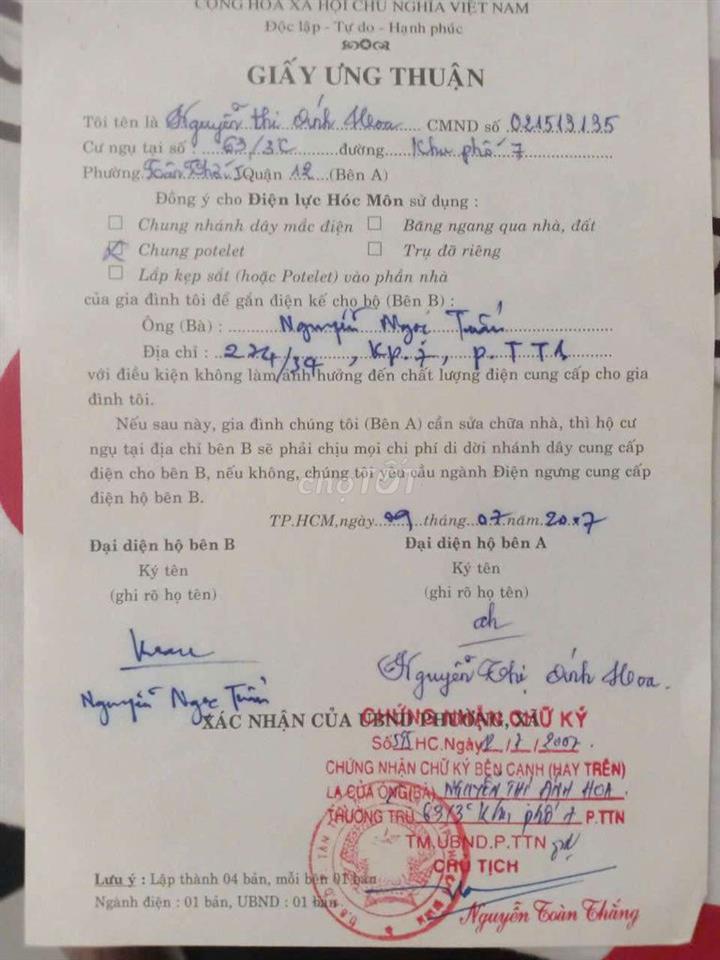 CỘNG HÒA XÃ HỘI CHỦ NGHĨA VIỆT NAM
Độc lập - Tự do - Hạnh phúc
GIẤY ƯNG THUẬN
Tôi tên là Nguyễn Thị Ánh Hoa CMND số 021513135
Cư ngụ tại số : 63/3C đường Khu phố 7
Phường Quận 12 (Bên A)
Đồng ý cho Điện lực Hóc Môn sử dụng :
Chung nhánh dây mắc điện Băng ngang qua nhà, đất
Chung potelet Trụ đỡ riêng
Lắp kẹp sắt (hoặc Potelet) vào phần nhà
của gia đình tôi để gắn điện kế cho hộ (Bên B) :
Ông (Bà) : Nguyễn Ngọc Tuấn
Địa chỉ : 224/34, Kp.7, p. TT1
với điều kiện không làm ảnh hưởng đến chất lượng điện cung cấp cho gia
đình tôi.
Nếu sau này, gia đình chúng tôi (Bên A) cần sửa chữa nhà, thì hộ cư
ngụ tại địa chỉ bên B sẽ phải chịu mọi chi phí di dời nhánh dây cung cấp
điện cho bên B, nếu không, chúng tôi yêu cầu ngành Điện ngưng cung cấp
điện hộ bên B.
chợTỐT
TP.HCM, ngày 09 tháng 07 năm 2007
Đại diện hộ bên B Đại diện hộ bên A
Ký tên Ký tên
(ghi rõ họ tên) (ghi rõ họ tên)
Nguyễn Thị Ánh Hoa.
Nguyễn Ngọc Tuấn
XÁC NHẬN CỦA UBND PHƯỜNG, XÃ
CHỨNG NHẬN CHỮ KÝ
Số HC.Ngày 12/7/2007.
CHỨNG NHẬN CHỮ KÝ BÊN CẠNH (HAY TRÊN)
LÀ CỦA ÔNG(BÀ) NGUYỄN THỊ ÁNH HOA
THƯỜNG TRÚ 63/3C Khu phố 7 P.TTN
TM.UBND.P.TTN
CHỦ TỊCH
Lưu ý : Lập thành 04 bản, mỗi bên 01 bản
Ngành điện : 01 bản, UBND : 01 bản
Nguyễn Toàn Thắng